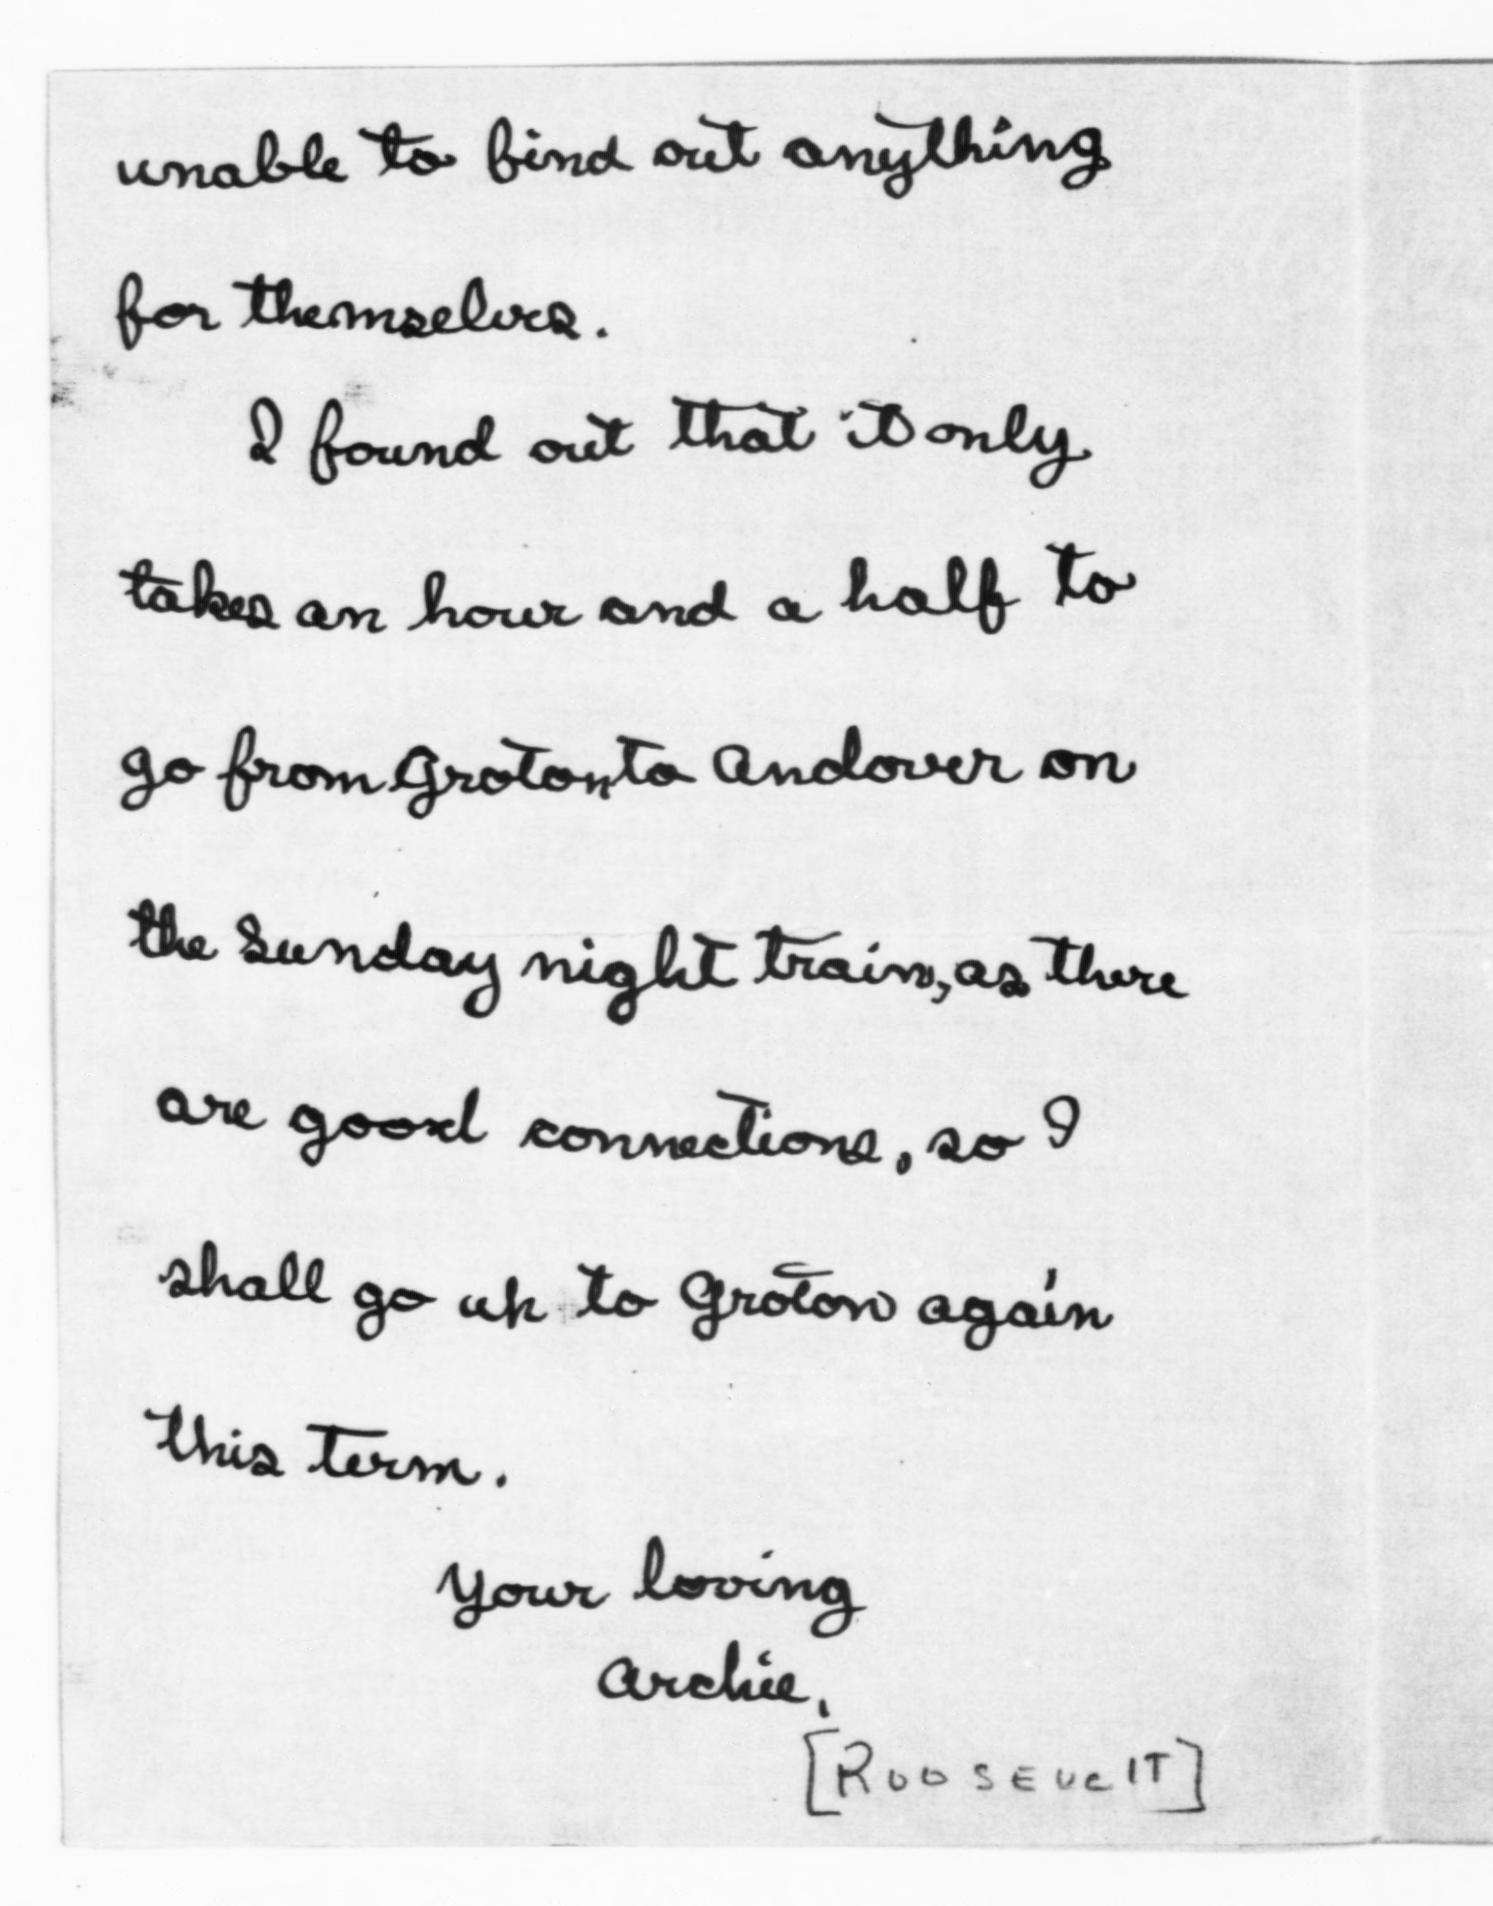 unable to find out anything
for themselves.
I found out that it only
takes an hour and a half to
go from Groton to Andover on
the Sunday night train, as there
are good connections, so I
shall go up to Groton again
this term.
Your loving
Archie.
[ROOSEVELT]